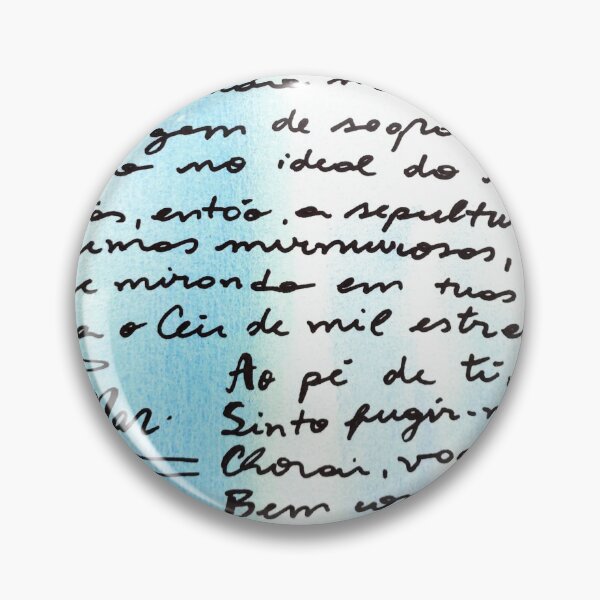 gem de sopro
o no ideal do
ós, então, a sepultu
umas murmurosas,
e mirando em tuas
a o Céu de mil estre
Ao pé de ti,
Sinto fugir-
Mar.
Chorai, vo
Bem